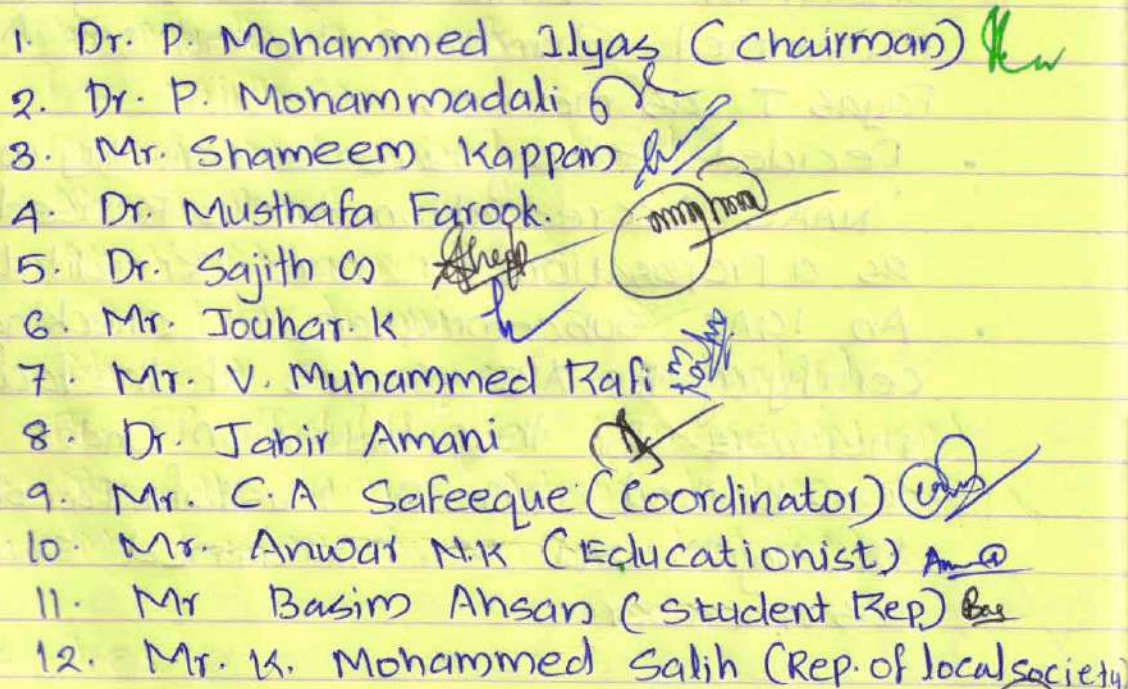 1. Dr. P. Mohammed Ilyas (Chairman)
2. Dr. P. Mohammadali
3. Mr. Shameem Kappan
4. Dr. Musthafa Farook.
5. Dr. Sajith
6. Mr. Jouhar. K
7. Mr. V. Muhammed Rafi
8. Dr. Jabir Amani
9. Mr. C.A Safeeque (Coordinator)
10. Mr. Anwar N.K (Educationist)
11. Mr Basim Ahsan (Student Rep)
12. Mr. K. Mohammed Salih (Rep. of local society)